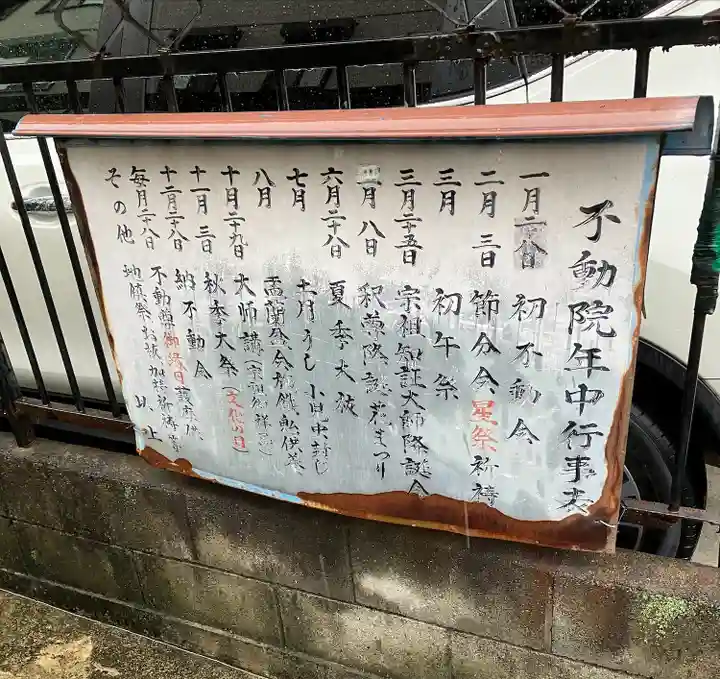 不動院年中行事表
一月二十八日 初不動会
二月 三日 節分会 星祭祈祷
三月 初午祭
三月二十五日 宗祖智証大師降誕会
四月 八日 釈尊降誕花まつり
六月二十八日 夏季大祓
七月 土用うし
八月 盂蘭盆会施餓飢供養
十月二十九日 大師講
十一月 三日 秋季大祭(文化の日)
十二月二十八日 納不動会
毎月二十八日 不動尊御縁日護摩供
その他 地鎮祭お祓加持祈祷等
以上